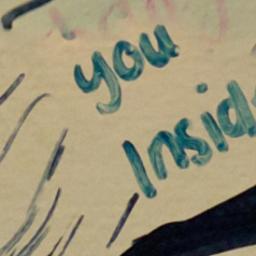 you
Insid